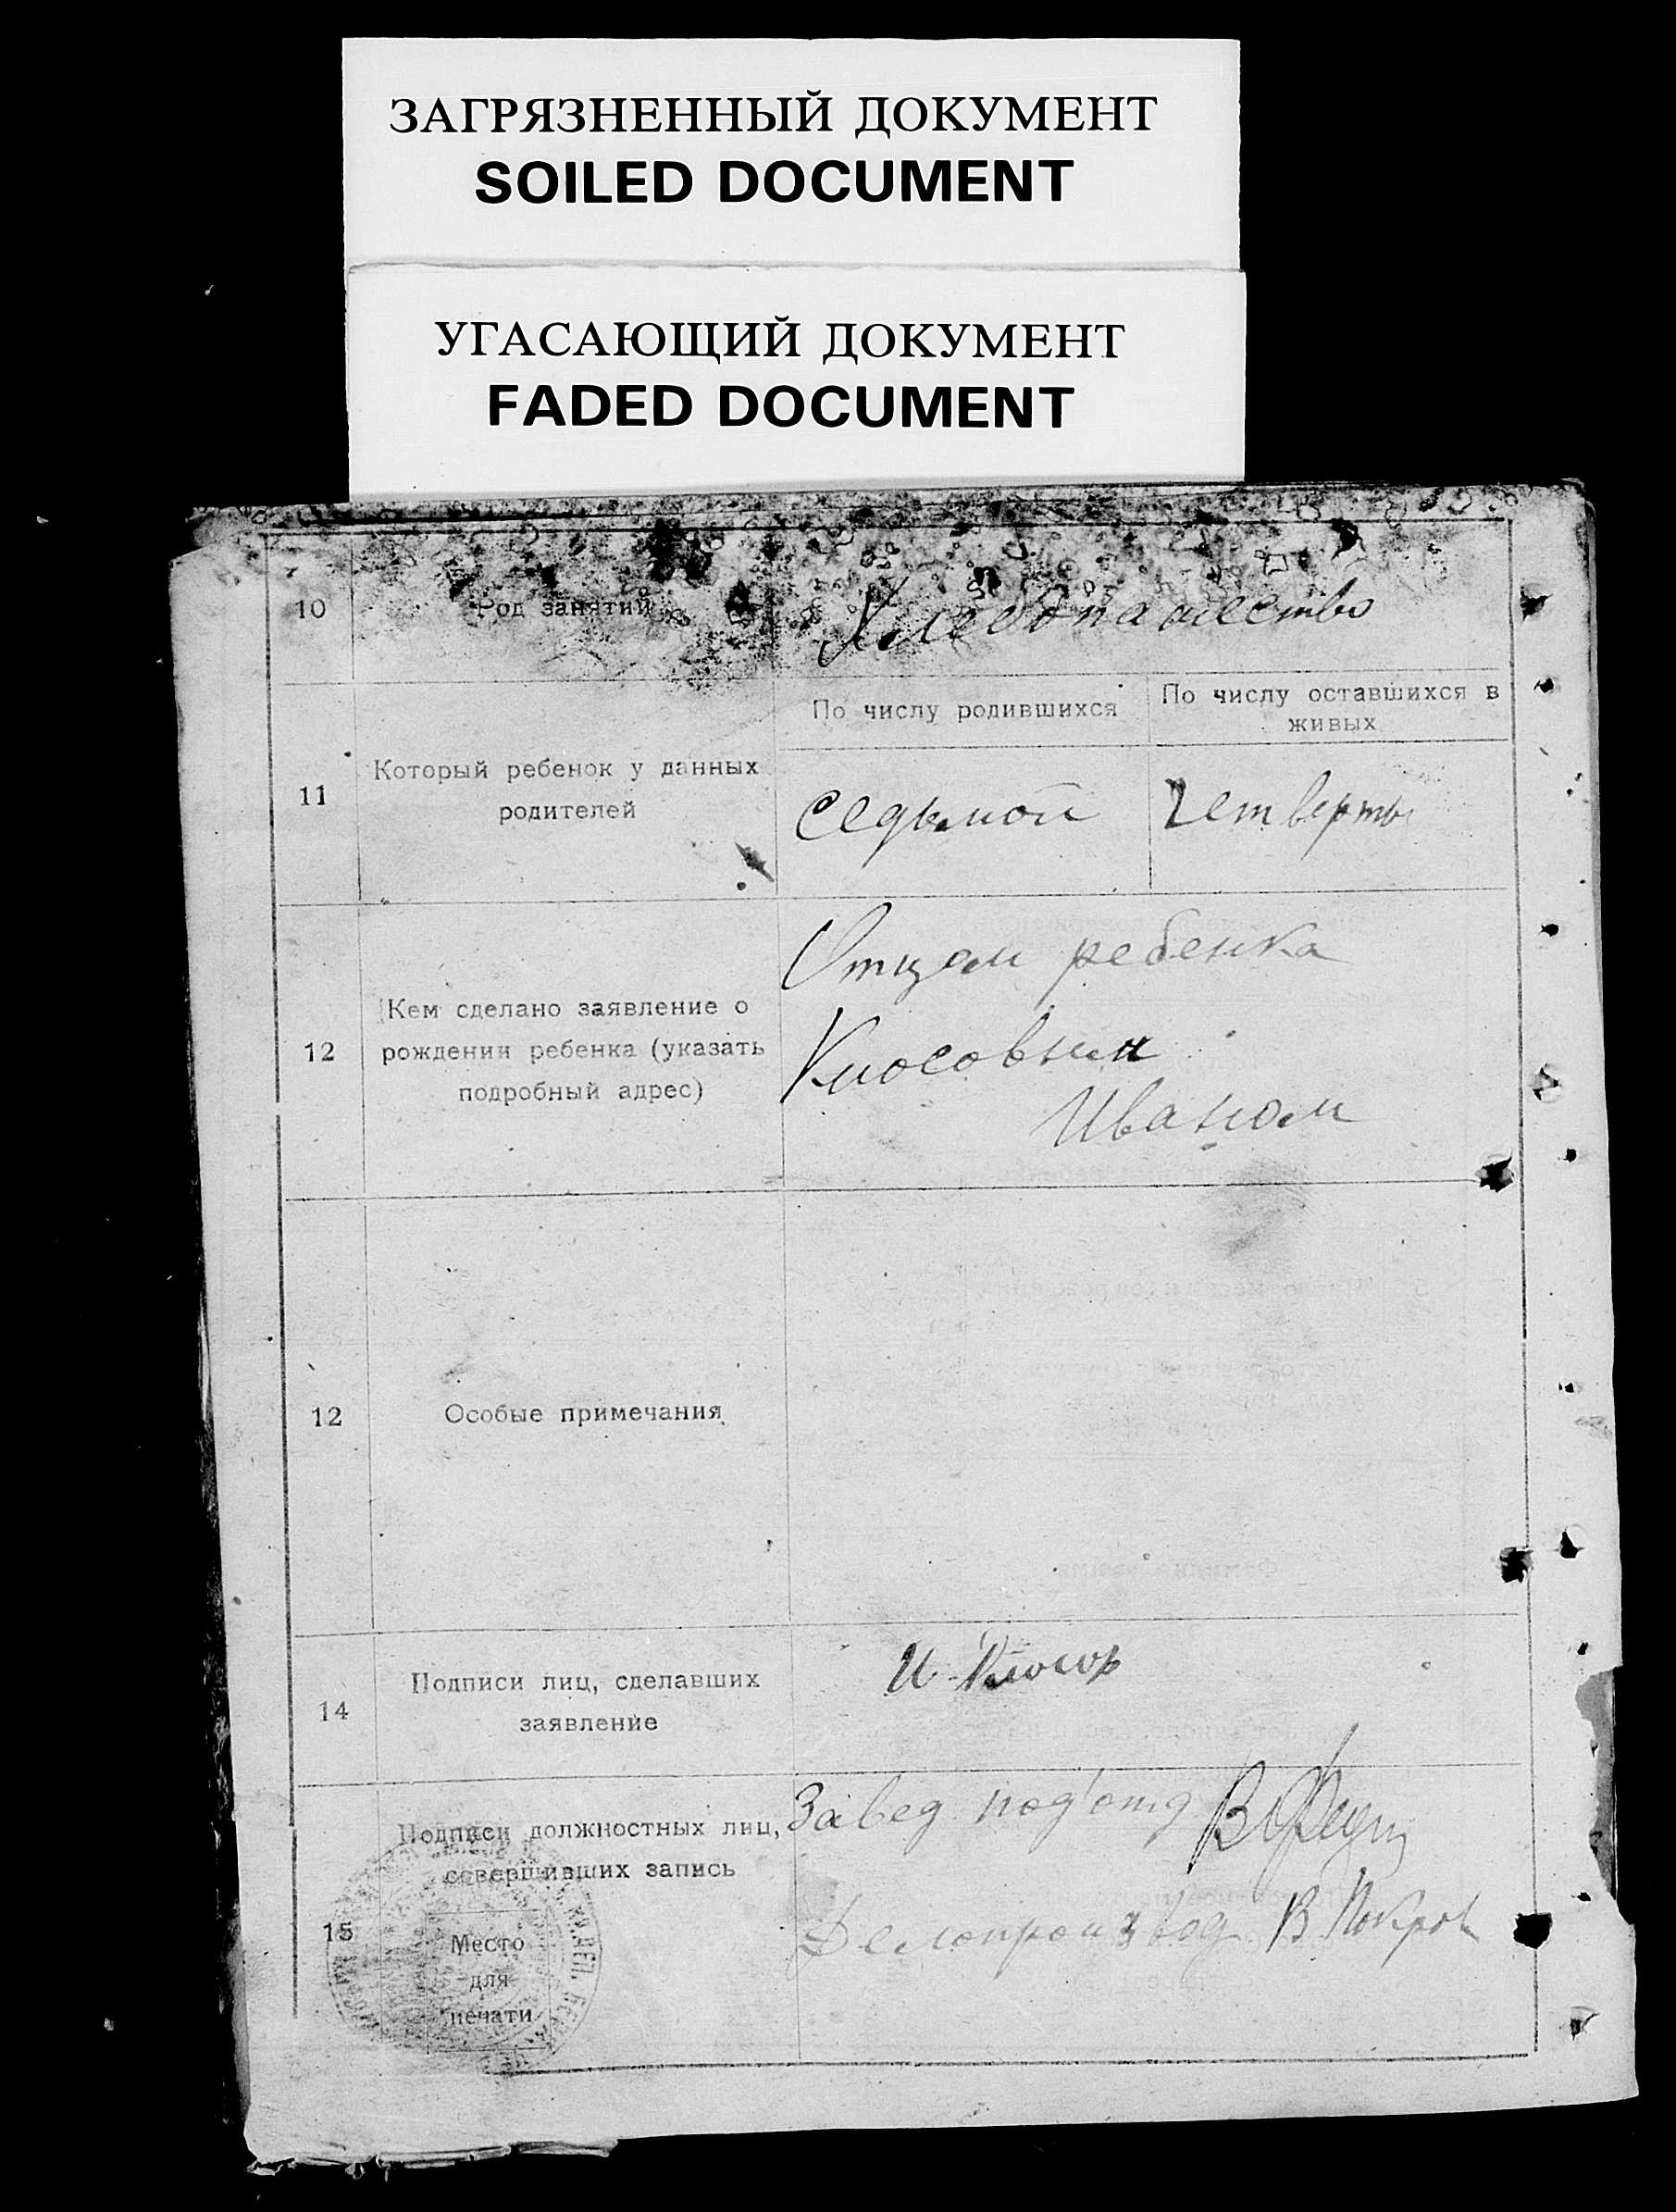 ЗАГРЯЗНЕННЫЙ ДОКУМЕНТ
SOILED DOCUMENT
УГАСАЮЩИЙ ДОКУМЕНТ
FADED DOCUMENT
10 Род занятий Хлебопашество
11 Который ребенок у данных
родителей
По числу родившихся
По числу оставшихся в
живых
седьмой
четверты
12 Кем сделано заявление о
рождении ребенка (указать
подробный адрес)
Отцом ребенка
Иваном
12 Особые примечания
14 Подписи лиц, сделавших
заявление
И
15 Подписи должностных лиц,
совершивших запись
Место
для
печати
Завед под'отд
Делопроизвод В Покров